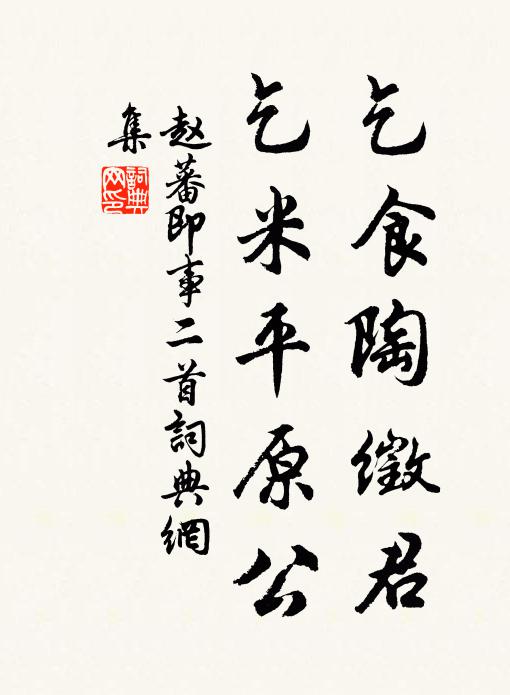 乞食陶徵君
乞米平原公
赵蕃即事二首詞典網
集
詞典网印